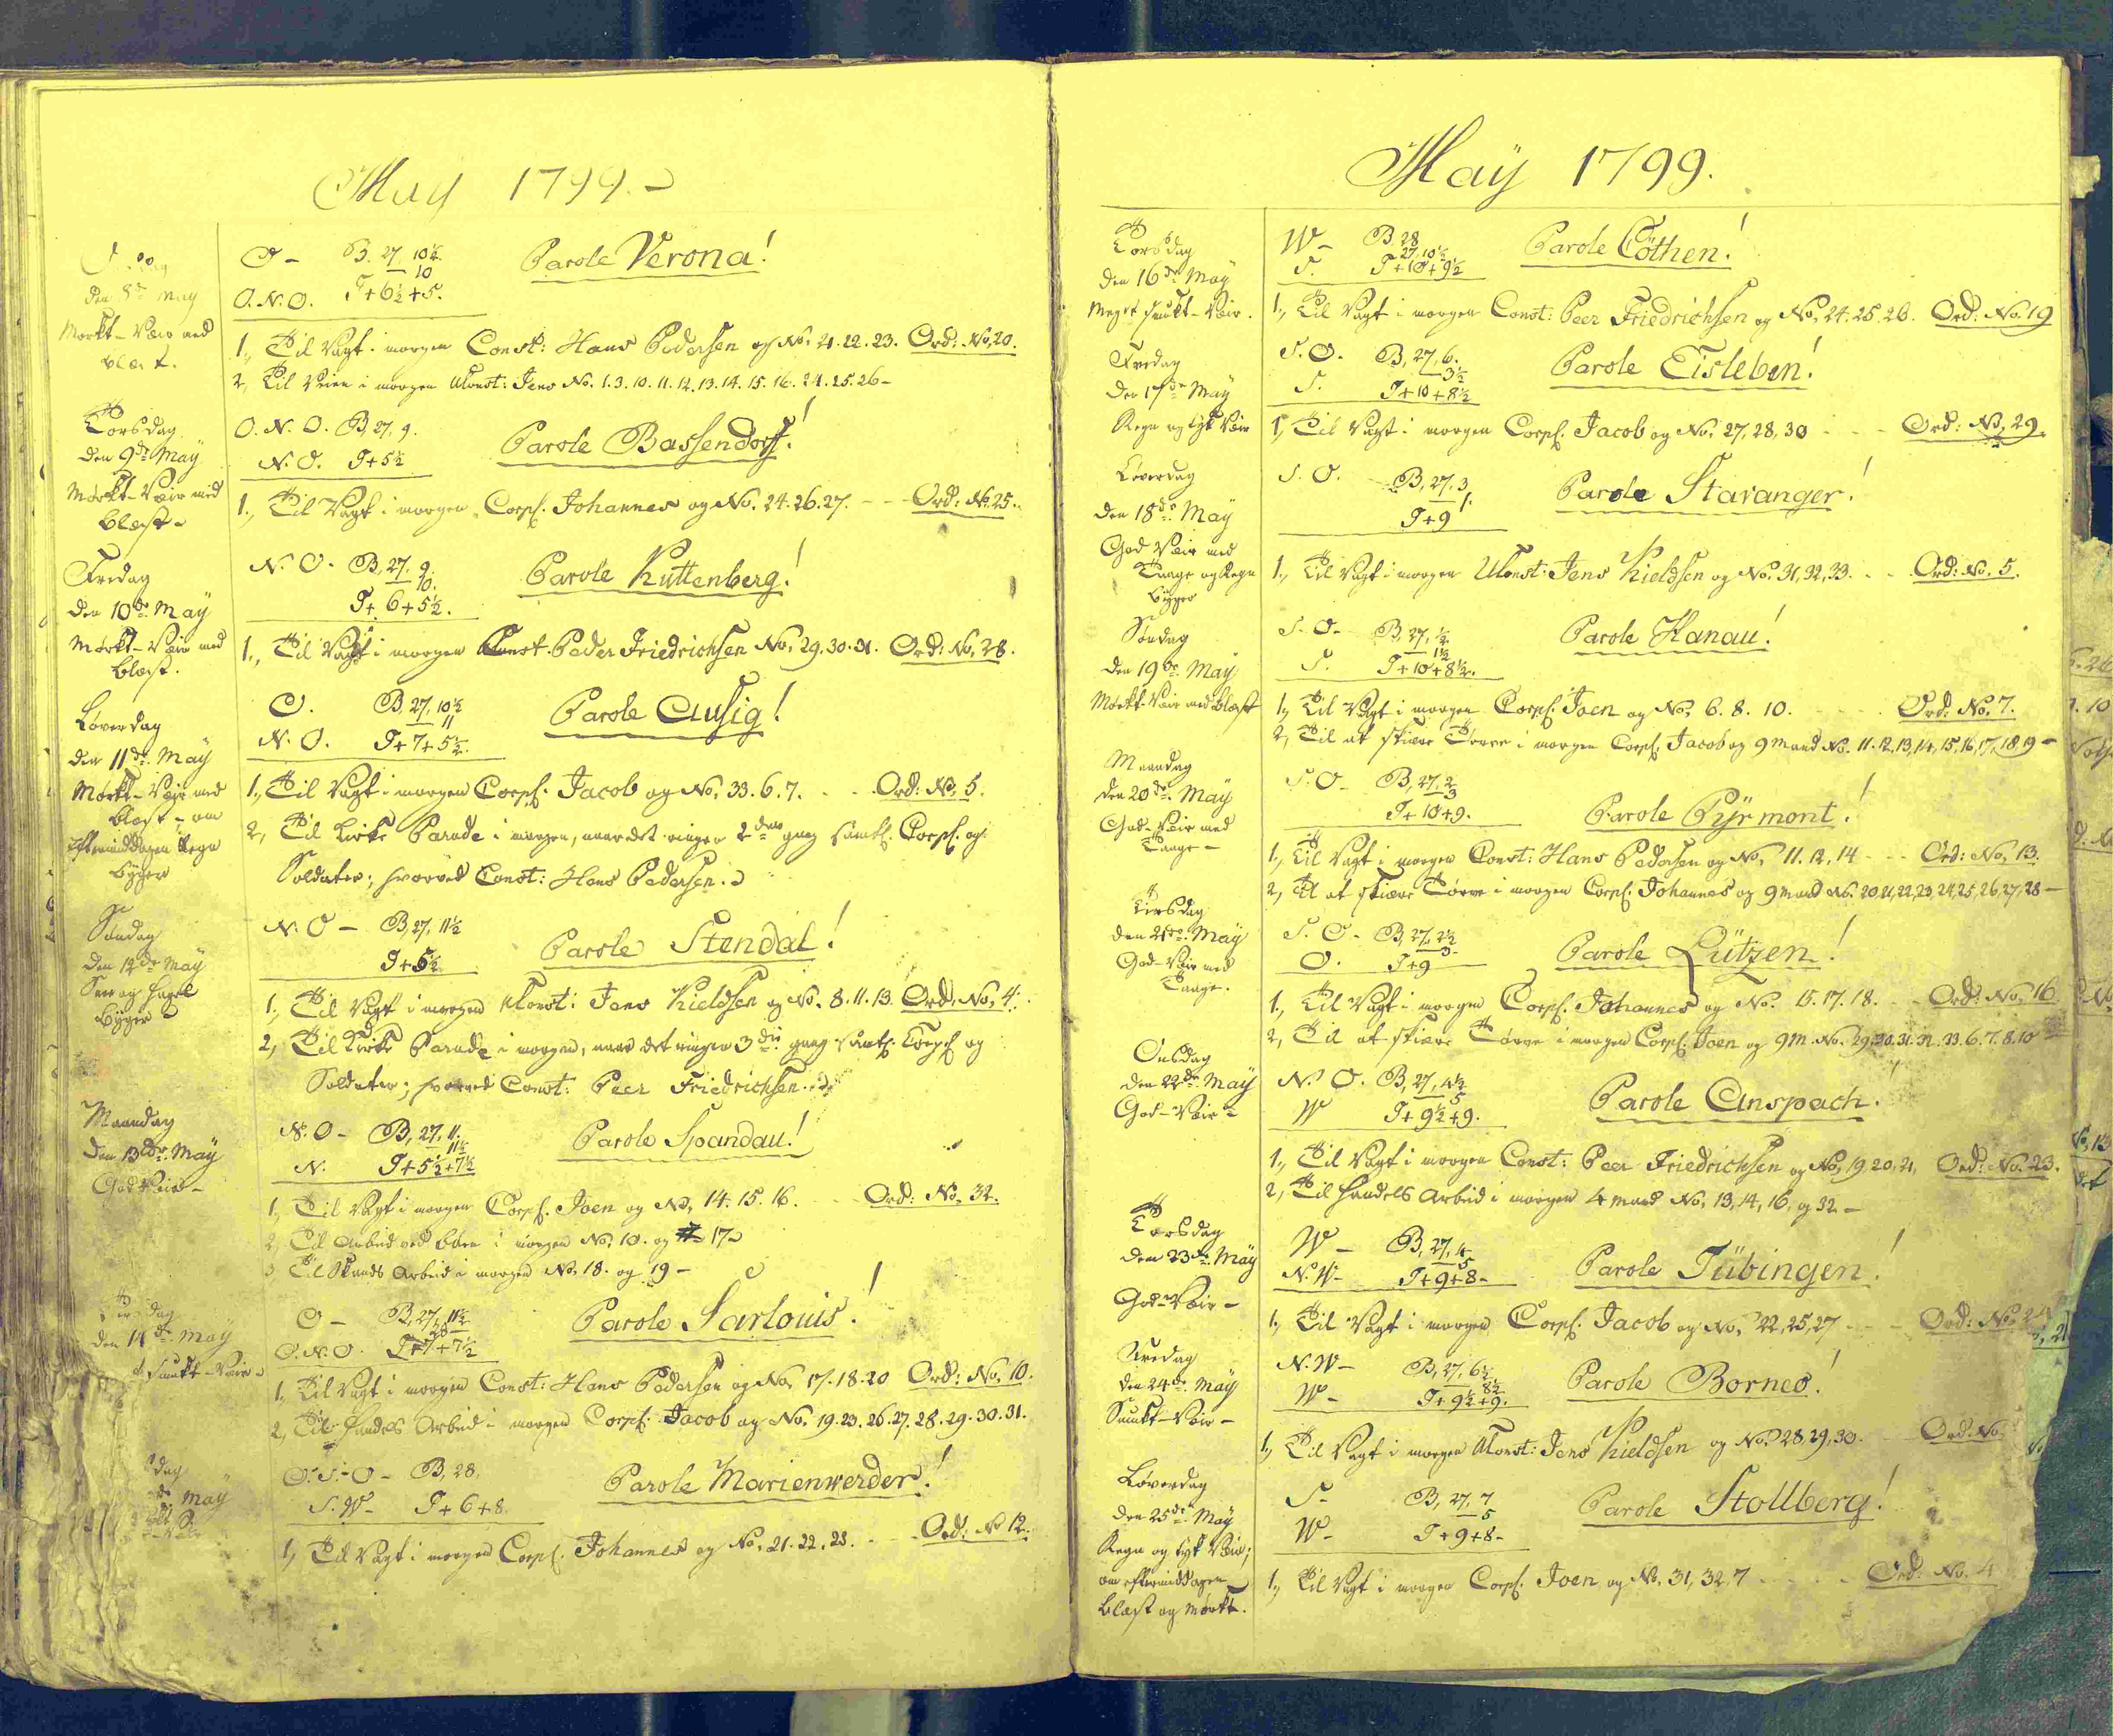 May 1799.
den 8de May
Mørkt-Veir med
blæst.
O - B. 27, 10½.
10
O.N.O. T+6½+5.
Parole Verona!
1., Til Vagt i morgen Const: Hans Pedersen og No. 21.22.23. Ord: No, 20.
2, Til Veien i morgen UConst: Jens No. 1.3.10.11.12.13.14.15.16.24.25.26-
Torsdag
den 9de May
Mørkt-Veir med
blæst-
O.N.O. B,27,9.
N.O. T+5½
Parole Bassendorff!
1., Til Vagt i morgen Corpl. Johannes og No. 24.26.27. -- Ord: No. 25.
Fredag
den 10de May
Mørkt-Veir med
blæst.
N.O. B,27.9.
10.
T+6+5½.
Parole Kuttenberg!
1., Til Vagt i morgen Const. Peder Friedrichsen No, 29.30.31. Ord: No, 28.
Løverdag
den 11de May
Mørkt-Veir med
blæst-om
Eftermiddagen Regn
bÿger
O. B,27,10½
11
N.O. T+7+5½.
Parole Ausig!
1., Til Vagt i morgen Corpl. Jacob og No, 33.6.7. -- Ord: No, 5.
2, Til Kirke Parade i morgen, naar det ringer 2den gang samtl. Corpl. og
Soldater; hvorved Const: Hans Pedersen.
Søndag
den 12de May
Snee og hagel
bÿger
N.O - B,27,11½
T+5½
Parole Stendal!
1., Til Vagt i morgen UConst: Jens Kieldsen og No. 8.11.13. Ord: No, 4.
2, Til Kirke Parade i morgen, naar det ringer 3die gang samtl. Corpl og
Soldater; hvorved Const: Peer Friedrichsen.
Maandag
den 13de May
God Veir-
N.O- B,27,11.
11½
N. T+5½+7½
Parole Spandau!
1., Til Vagt i morgen Corpl. Joen og No, 14.15.16. -- Ord: No. 32.
2, Til Arbeid ved i morgen No, 10. og 17
3 Til Arbeid i morgen No, 18. og 19-
Tirsdag
den 14de May
Smukt-Veir
O- B,27,11½
28
O.N.O. T+7+7½
Parole Sarlouis!
1, Til Vagt i morgen Const: Hans Pedersen og No, 17.18.20 Ord: No, 10.
2, Til Handels Arbeid i morgen Corpl. Jacob og No, 19.23.26.27.28.29.30.31.
dag
de May
O.S.O- B,28.
S.W- T+6+8.
Parole Marienwerder!
1, Til Vagt i morgen Corpl. Johannes og No, 21.22.23. -- Ord: No 12.
Maÿ 1799.
Torsdag
den 16de Maÿ
Meget smukt-Veir.
W- B,28
27,10½
S. T+10+9½
Parole Cöthen!
1., Til Vagt i morgen Const: Peer Friedrichsen og No, 24.25.26. Ord: No. 19
Fredag
den 17de Maÿ
Regn og tykt Veir
S.O. B,27,6.
3½
S. T+10+8½
Parole Eisleben!
1, Til Vagt i morgen Corpl. Jacob og No, 27,28,30 -- Ord: No, 29.
Løverdag
den 18de Maÿ
God Veir med
Taage og Regn
bÿger
S.O. B,27.3
1.
T+9
Parole Stavanger!
1., Til Vagt i morgen UConst: Jens Kieldsen og No, 31,32,33. -- Ord: No, 5.
Søndag
den 19de Maÿ
Mørkt-Veir med blæst
S.O- B,27,½
1½
S. T+10+8½.
Parole Hanau!
1, Til Vagt i morgen Corpl. Joen og No, 6.8.10. Ord: No, 7.
2, Til at skiære Tørve i morgen Corpl. Jacob og 9 Mand No. 11.12,13,14,15,16,17,18,19-
Maandag
den 20de Maÿ
God-Veir med
Taage-
S.O- B,27,2
3
T+10+9.
Parole Pÿrmont!
1., Til Vagt i morgen Const: Hans Pedersen og No, 11.12,14 -- Ord: No, 13.
2, Til at skiære Tørve i morgen Corpl. Johannes og 9 Mand No. 20,21,22,23,24,25,26,27,28-
Tirsdag
den 21de Maÿ
God-Veir med
Taage.
S.O- B,27,2½
3.
O. T+9
Parole Lützen!
1., Til Vagt i morgen Corpl. Johannes og No. 15.17.18. -- Ord: No, 16
2, Til at skiære Tørve i morgen Corpl. Joen og 9 M. No. 29.30.31.32.33.6.7.8.10
Onsdag
den 22de Maÿ
God-Veir-
N.O. B,27,4½
5
W T+9½+9.
Parole Anspach.
1., Til Vagt i morgen Const: Peer Friedrichsen og No, 19,20,21, Ord: No. 23.
2, Til Handels Arbeid i morgen 4 Mand No, 13,14,16, og 32-
Torsdag
den 23de Maÿ
God-Veir-
W- B,27,4
5
N.W- T+9+8-
Parole Tübingen!
1, Til Vagt i morgen Corpl. Jacob og No, 22,25,27 -- Ord: No, 24
Fredag
den 24de Maÿ
Smukt-Veir-
N.W- B,27,6½
8½
W- T+9½+9.
Parole Borneo!
1, Til Vagt i morgen UConst: Jens Kieldsen og No, 28,29,30. Ord: No
Løverdag
den 25de Maÿ
Regn og tykt Veir;
om eftermiddagen
blæst og mørkt.
S- B,27,7
5
W- T+9+8-
Parole Stollberg!
1., Til Vagt i morgen Corpl. Joen og No, 31,32,7 -- Ord: No. 4